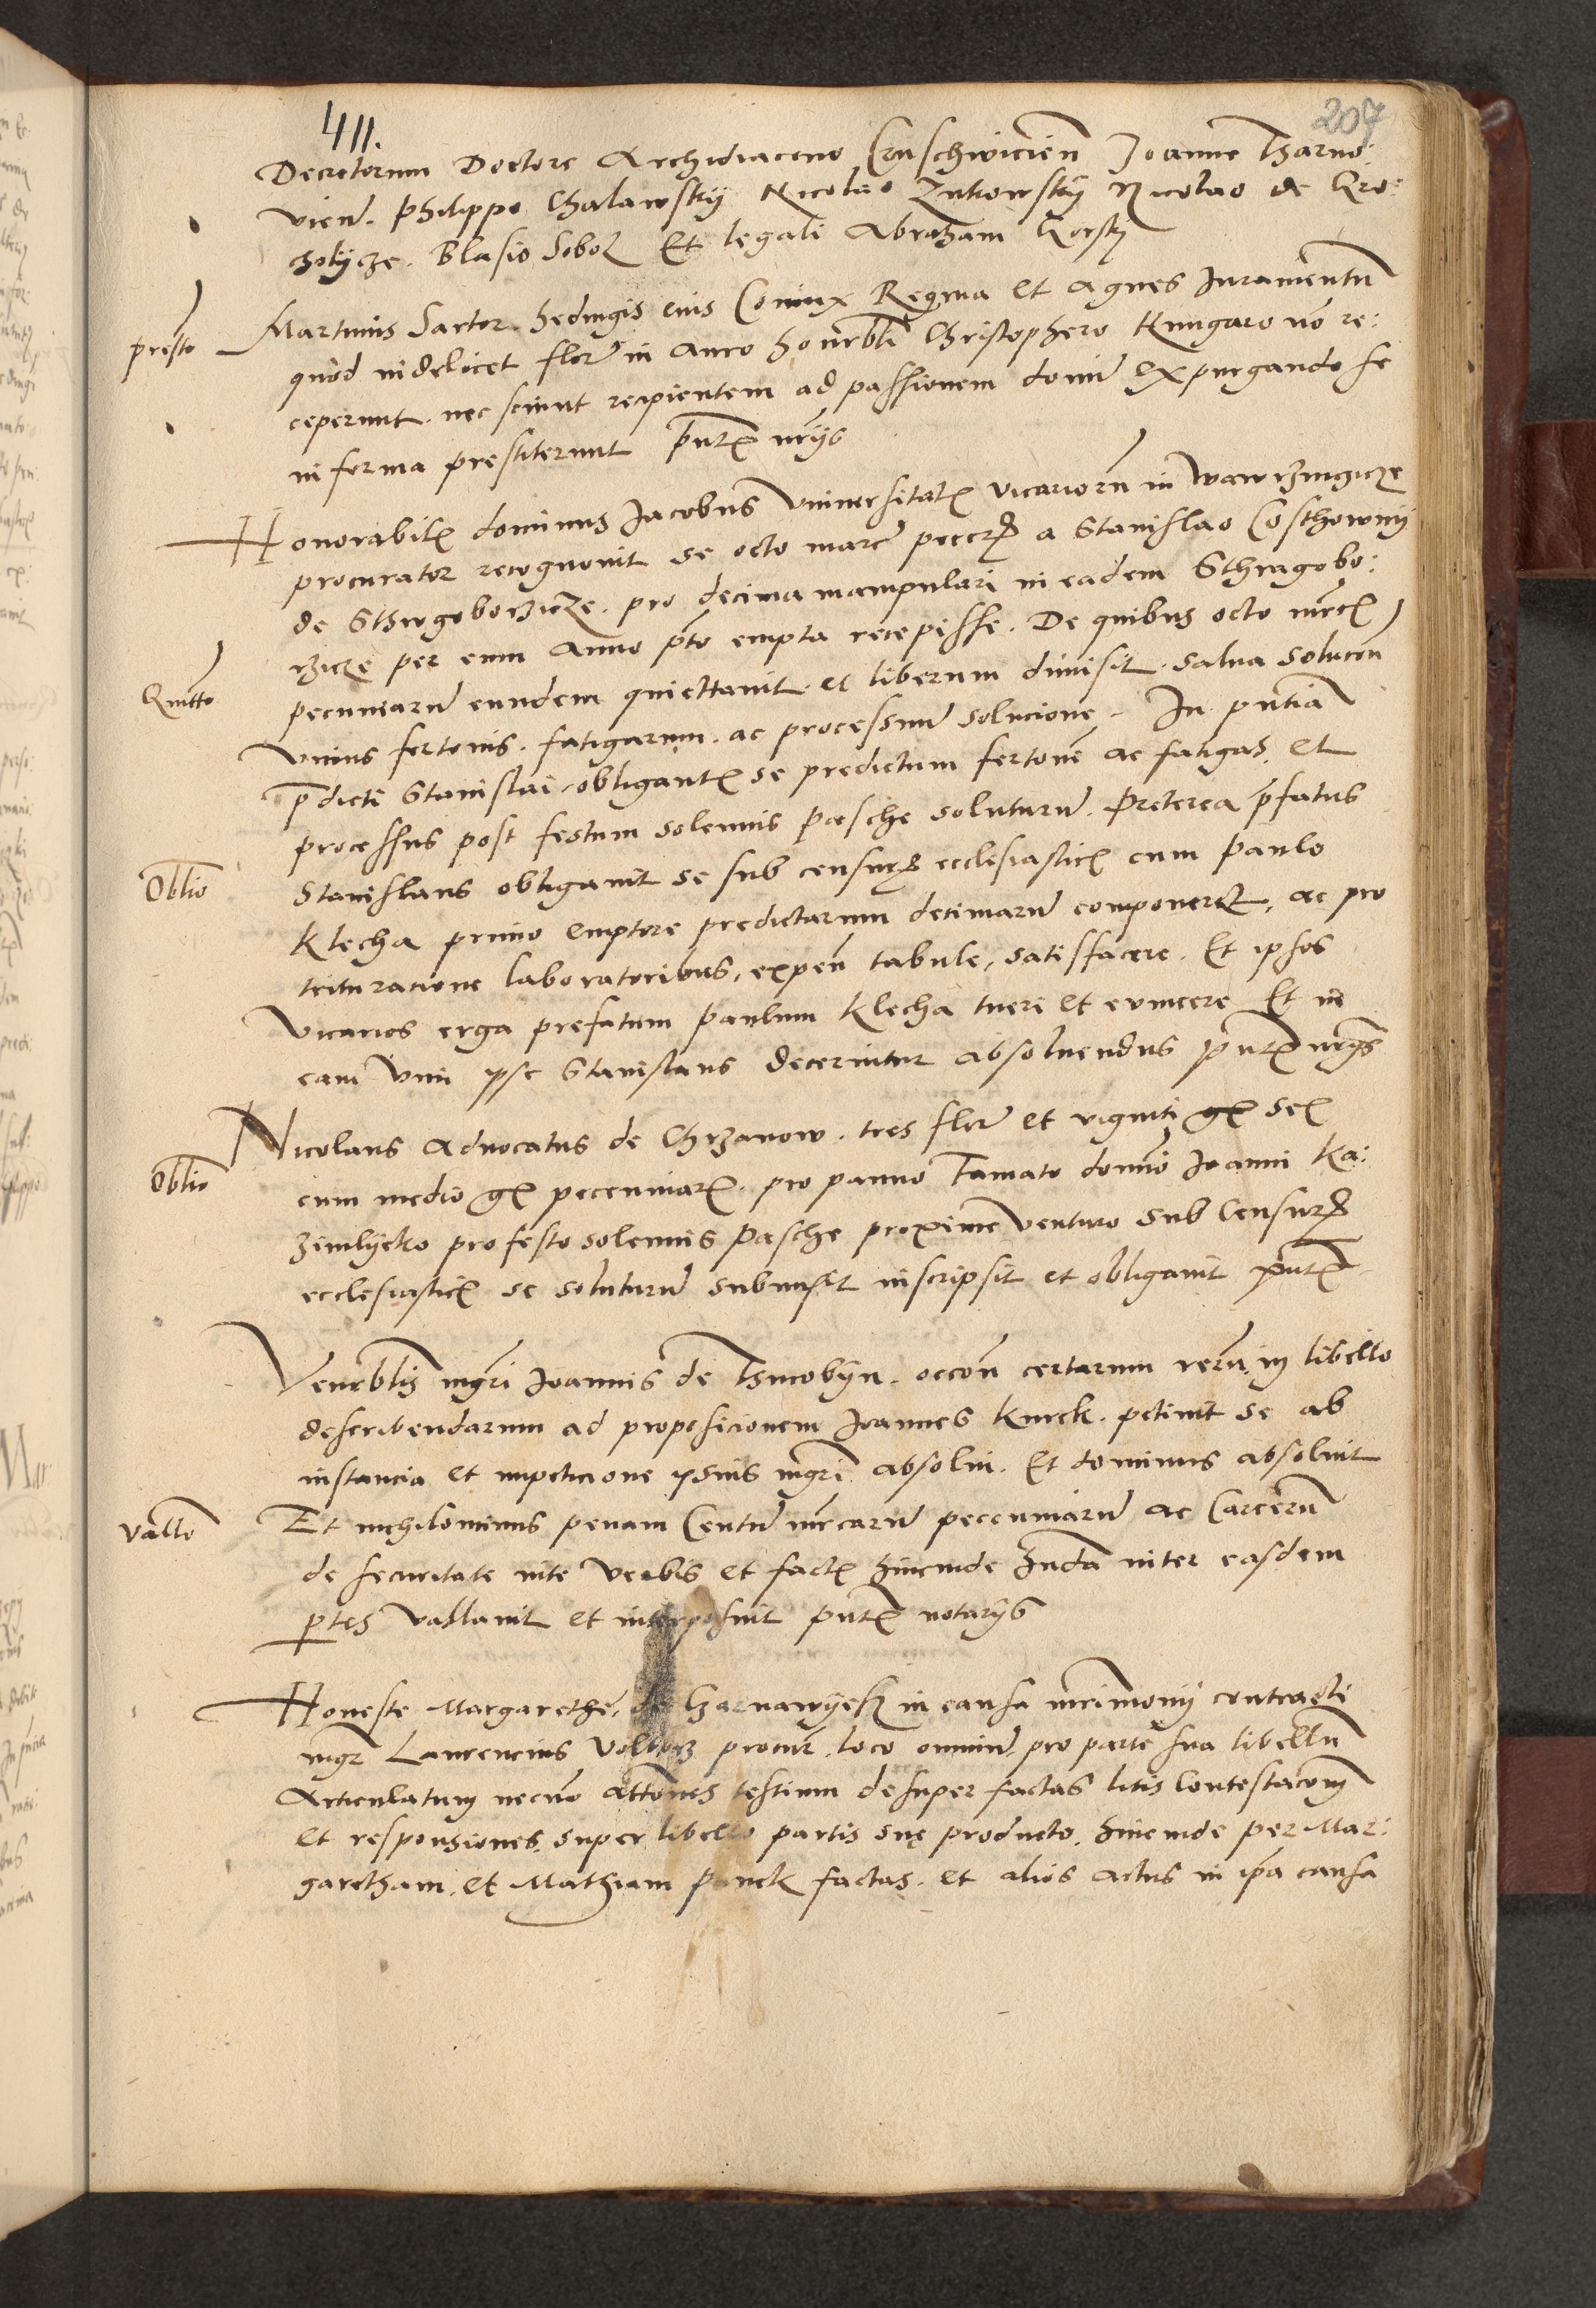 411.
207
Decretorum Doctore Archidiacono Cruschwicien̄ Joanne Tharno:
vien̄. Philippo Chalawskij Nicolao Zukowskij Nicolao de Gro:
cholijcze. Blasio Sobol Et legali Abraham Gorskj
presto
Martinus Sartor. Hedvigis eius Coniux Regina et Agnes Juramentū
quod videlicet flor̄ in auro honorbli Christophero Hungaro nō re:
ceperunt. nec sciunt recipientem ad passionem domi expurgando se
in forma prestiterunt pn̄tƺ nr̄ijs
Honorabilƺ dominus Jacobus Vniversitatƺ vicariorū in wawrzinczicze
procurator recognovit se octo marc̄ pecc̄ƺ a Stanislao Costhowny
de Sthrgoborzicze. pro decima manipulari in eadem Sthrzgobo:
rzicze per eum Anno pn̄to empta recepisse. De quibus octo mr̄cƺ
Quitto
pecuniarū eundem quiettavit. et liberum dimisit. salva solucōn
Vnius fertonis. fatigarum. ac processuū solucione. In pn̄tiā
p̄dicti Stanislai obligantƺ se predictum fertonē ac fatigas. et
processus post festum solennis pasche soluturū. Preterea p̄fatus
Oblio
Stanislaus obligavit se sub censurƺ ecclesiasticƺ cum paulo
Klecha primo emptore predictarum decimarū componere. ac pro
trituracione laboratoribus, expen̄ tabule, satisfacere. Et ipsos
Vicarios erga prefatum paulum Klecha tueri et evincere Et in
eam vim ipse Stanislaus decernitur absolvendus pn̄tƺ nr̄ijs
Nicolaus Advocatus de Chrzanow. tres flor̄ et viginti gƺ sex
Oblio
cum medio gƺ peccuniarƺ. pro panno Tamato domino Joanni Ka:
zimlijcko pro festo solennis pasche proxime venturo sub Censurƺ
ecclesiasticƺ se soluturū submisit inscripsit et obligavit pn̄tƺ
Venerblis mgr̄i Joannis de Thurobijn. occōn certarum rerū in libello
describendarum ad proposicionem Joannes Kurek. petivit se ab
instancia et impeticione ipsius mgr̄i absolvi. Et dominus absolvit
Vallo
Et nichilominus penam Centū mr̄carū peccuniarū ac Carcerū
de securitate vite Verbis et factƺ hincinde h̄nda inter easdem
p̄tes vallavit et interposuit pn̄tƺ notarijs
Honeste Margarethe, de Czarnawijesz in causa mr̄imonij contracti
mgr̄ Laurencius Volborz procur̄. loco omniū. pro parte sua libellū
Articulatum necnō attōnes testium desuper factas litis Contestacōnem
et responsiones. super libello partis sue producto. hincinde per Mar:
garetham. et Mathiam Pauck factas. et alios actus in ip̄a causa